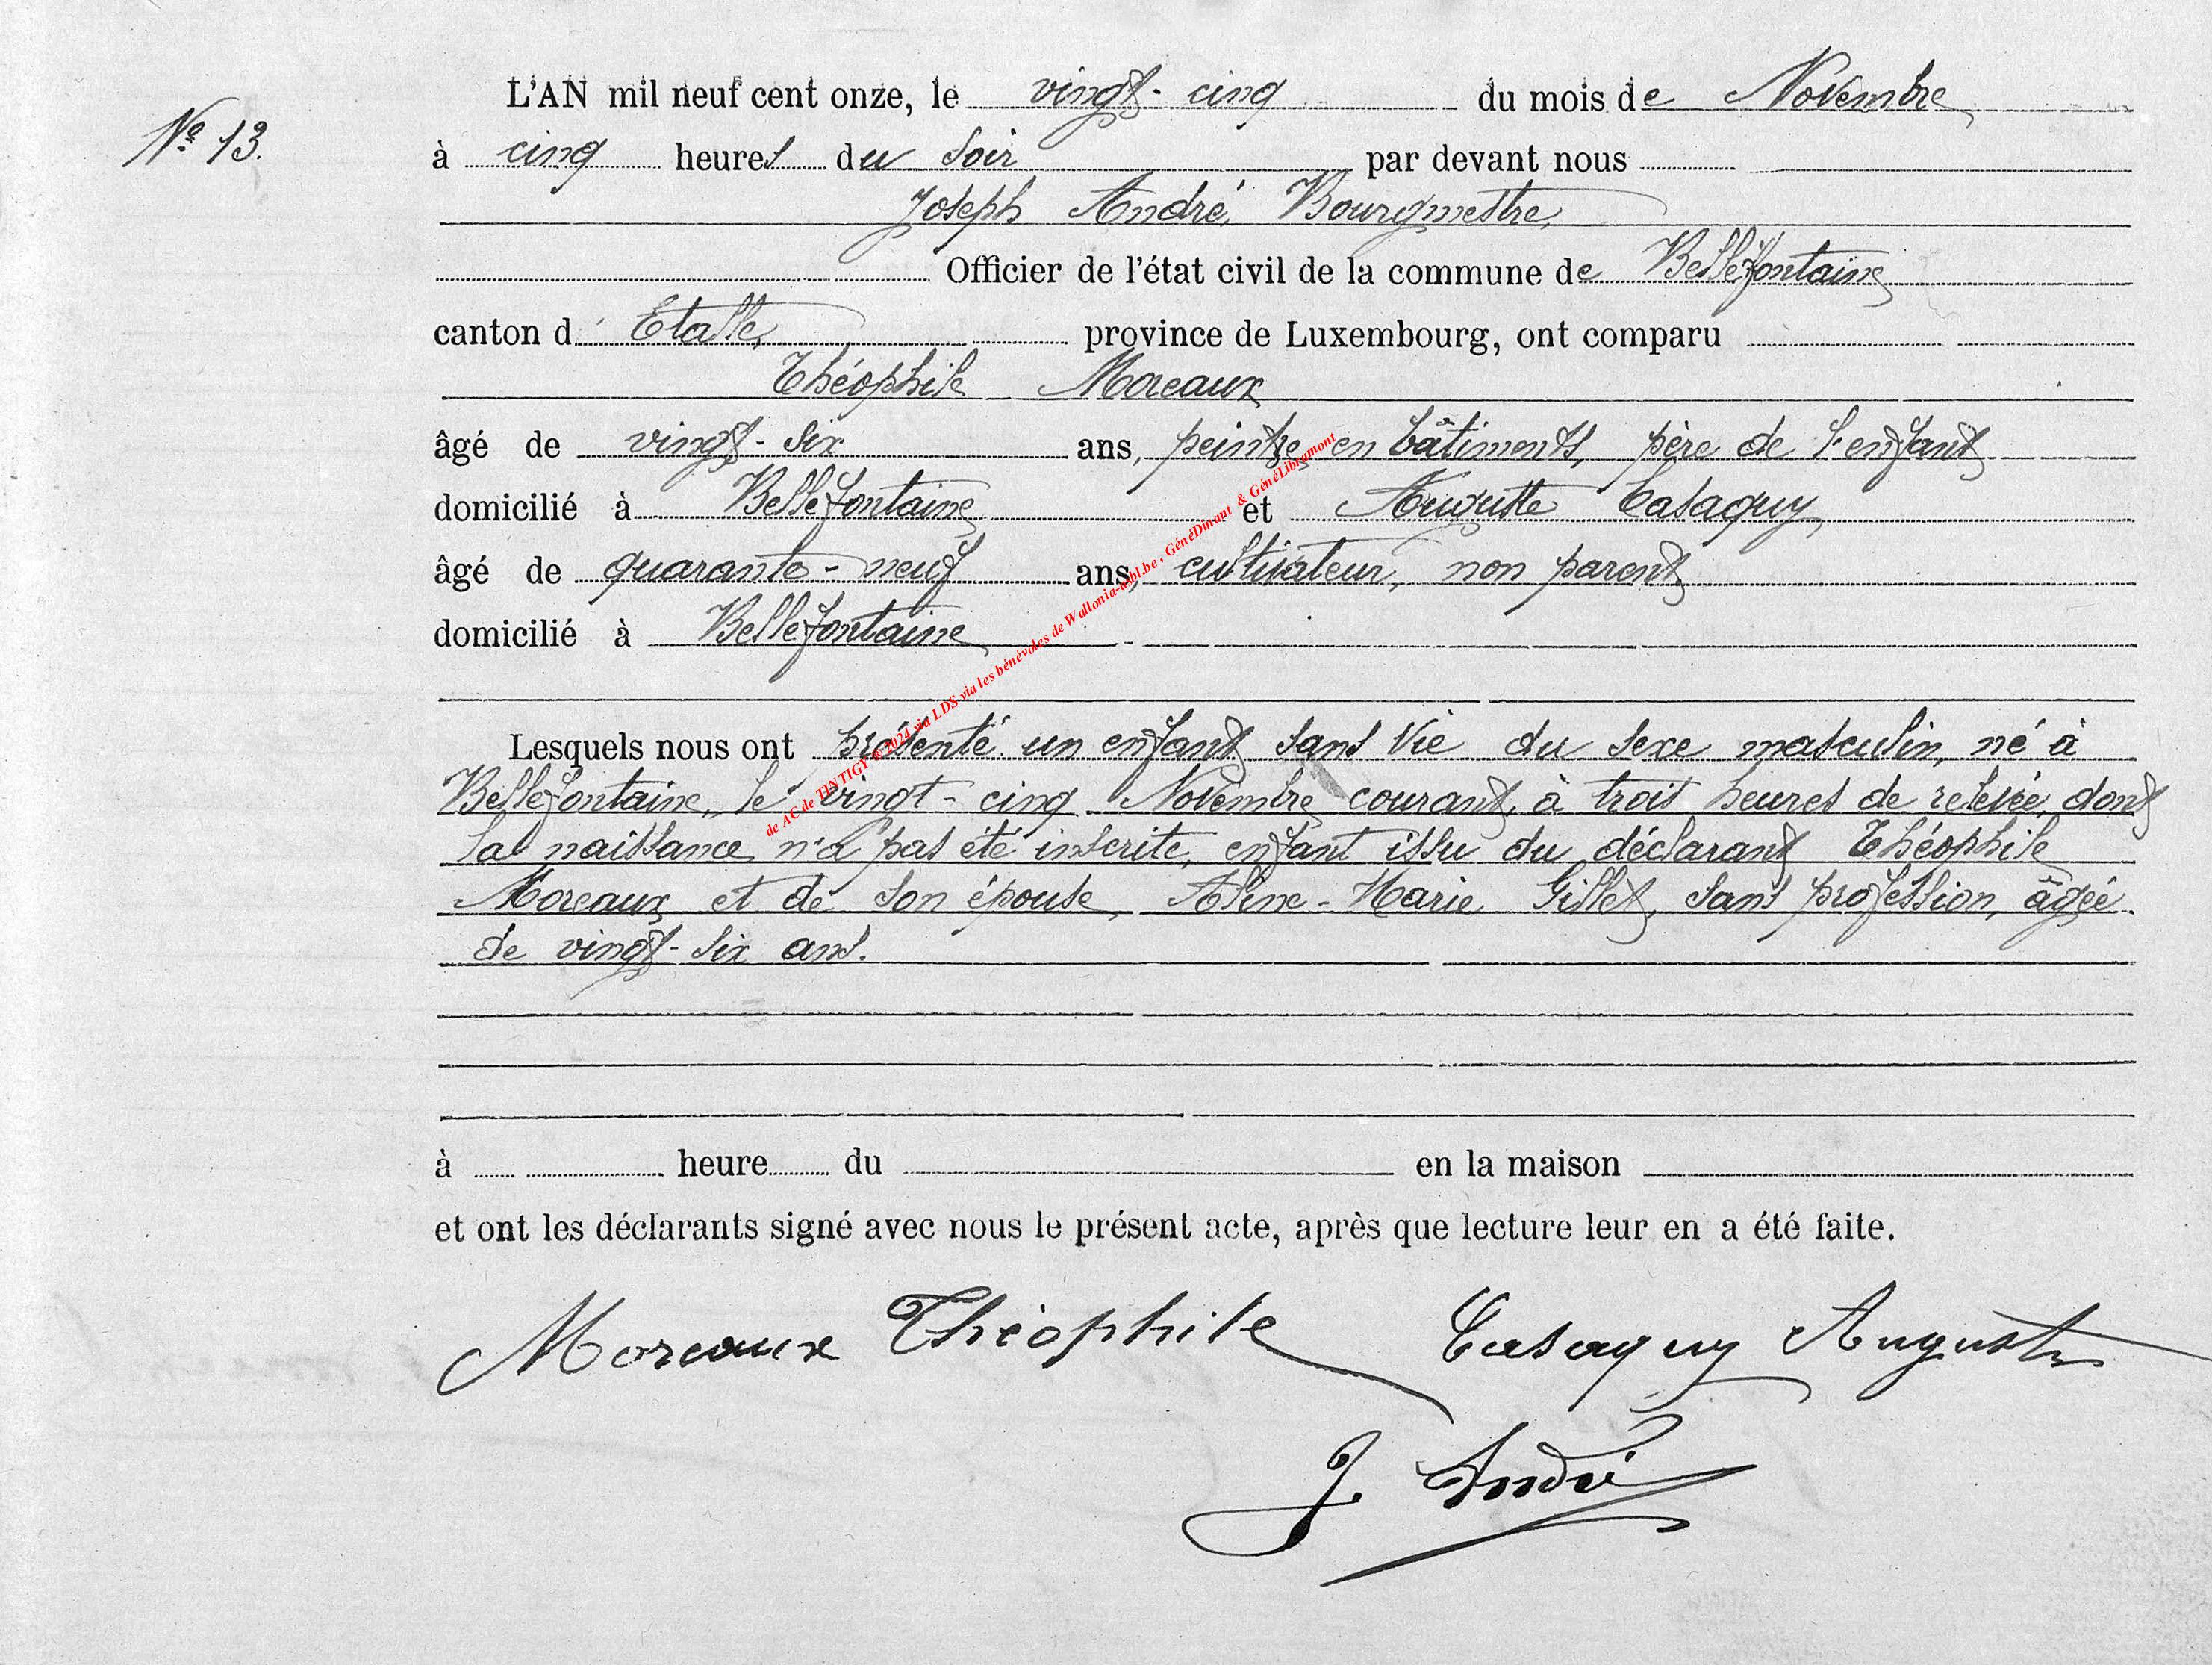 L'AN mil neuf cent onze, le vingt-cinq du mois de Novembre
Nº 13.
à cinq heures du soir par devant nous
Joseph André, Bourgmestre,
Officier de l'état civil de la commune de Bellefontaine
canton d' Etalle, province de Luxembourg, ont comparu
Théophile Moreaux
âgé de vingt-six ans, peintre en bâtiments, père de l'enfant
domicilié à Bellefontaine et Auguste Casaquy,
âgé de quarante-neuf ans, cultivateur, non parent
domicilié à Bellefontaine
Lesquels nous ont présenté un enfant sans vie du sexe masculin, né à
Bellefontaine, le vingt-cinq Novembre courant, à trois heures de relevée, dont
la naissance n'a pas été inscrite, enfant issu du déclarant Théophile
Moreaux et de son épouse, Aline-Marie Gillet, sans profession, âgée
de vingt-six ans.
à heure du en la maison
et ont les déclarants signé avec nous le présent acte, après que lecture leur en a été faite.
Moreaux Théophile Casaquy Auguste
J. André
de AC de TINTIGY © 2024 via LDS via les bénévoles de Wallonia-asbl.be , GénéDinant & GénéLibramont